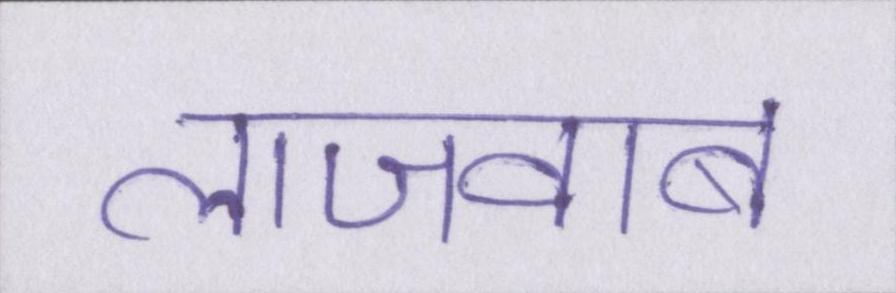 लाजवाब